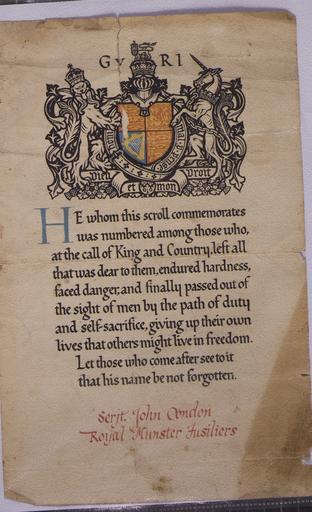 GV RI
Dieu et mon Droit
HE whom this scroll commemorates
was numbered among those who,
at the call of King and Country, left all
that was dear to them, endured hardness,
faced danger, and finally passed out of
the sight of men by the path of duty
and self-sacrifice, giving up their own
lives that others might live in freedom.
Let those who come after see to it
that his name be not forgotten.
Serjt. John Condon
Royal Munster Fusiliers